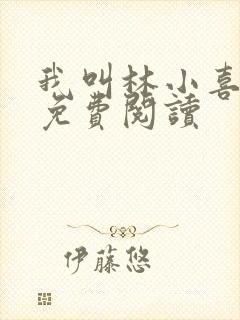 我叫林小喜
免費閱讀
伊藤悠